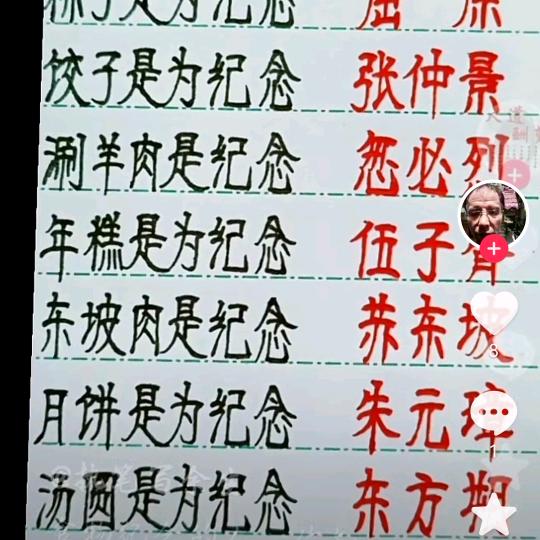 粽子是为纪念 屈原
饺子是为纪念 张仲景
涮羊肉是纪念 忽必烈
年糕是为纪念 伍子胥
东坡肉是纪念 苏东坡
月饼是为纪念 朱元璋
汤圆是为纪念 东方朔
8
1